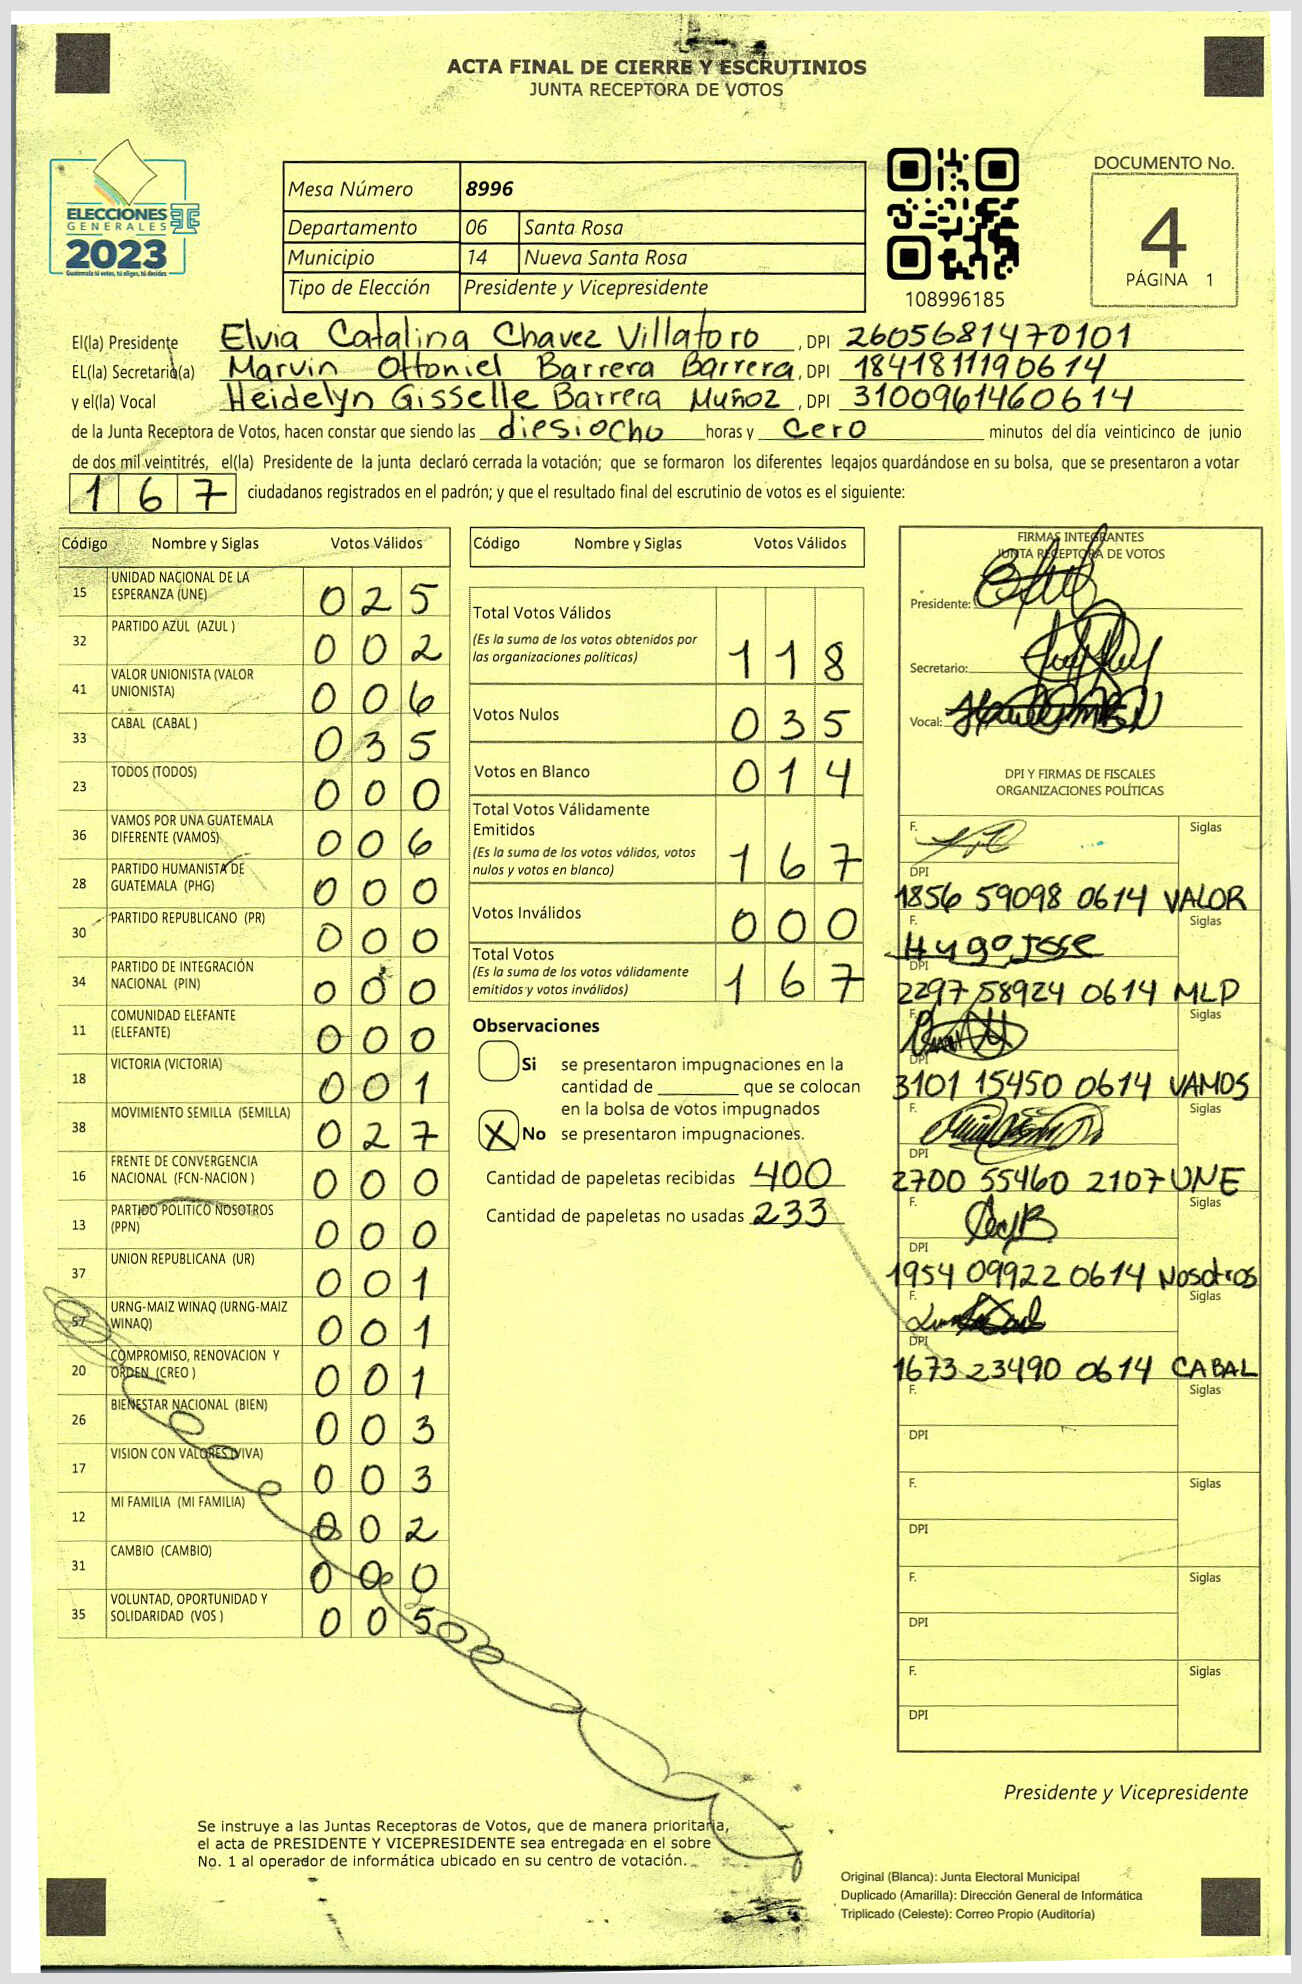 ACTA FINAL DE CIERRE Y ESCRUTINIOS
JUNTA RECEPTORA DE VOTOS
ELECCIONES
GENERALES
2023
Guatemala tú votas, tú eliges, tú decides
Mesa Número 8996
Departamento 06 Santa Rosa
Municipio 14 Nueva Santa Rosa
Tipo de Elección Presidente y Vicepresidente
108996185
DOCUMENTO No.
4
PÁGINA 1
El(la) Presidente Elvia Catalina Chavez Villatoro , DPI 2605681470101
EL(la) Secretario(a) Marvin Ottoniel Barrera Barrera , DPI 1841811190614
y el(la) Vocal Heidelyn Gisselle Barrera Muñoz , DPI 3100961460614
de la Junta Receptora de Votos, hacen constar que siendo las diesiocho horas y cero minutos del día veinticinco de junio
de dos mil veintitrés, el(la) Presidente de la junta declaró cerrada la votación; que se formaron los diferentes legajos guardándose en su bolsa, que se presentaron a votar
167 ciudadanos registrados en el padrón; y que el resultado final del escrutinio de votos es el siguiente:
Código Nombre y Siglas Votos Válidos
15 UNIDAD NACIONAL DE LA
ESPERANZA (UNE) 025
32 PARTIDO AZUL (AZUL ) 002
41 VALOR UNIONISTA (VALOR
UNIONISTA) 006
33 CABAL (CABAL ) 035
23 TODOS (TODOS) 000
36 VAMOS POR UNA GUATEMALA
DIFERENTE (VAMOS) 006
28 PARTIDO HUMANISTA DE
GUATEMALA (PHG) 000
30 PARTIDO REPUBLICANO (PR) 000
34 PARTIDO DE INTEGRACIÓN
NACIONAL (PIN) 000
11 COMUNIDAD ELEFANTE
(ELEFANTE) 000
18 VICTORIA (VICTORIA) 001
38 MOVIMIENTO SEMILLA (SEMILLA) 027
16 FRENTE DE CONVERGENCIA
NACIONAL (FCN-NACION ) 000
13 PARTIDO POLITICO NOSOTROS
(PPN) 000
37 UNION REPUBLICANA (UR) 001
57 URNG-MAIZ WINAQ (URNG-MAIZ
WINAQ) 001
20 COMPROMISO, RENOVACION Y
ORDEN (CREO ) 001
26 BIENESTAR NACIONAL (BIEN) 003
17 VISION CON VALORES (VIVA) 003
12 MI FAMILIA (MI FAMILIA) 002
31 CAMBIO (CAMBIO) 000
35 VOLUNTAD, OPORTUNIDAD Y
SOLIDARIDAD (VOS ) 005
Código Nombre y Siglas Votos Válidos
Total Votos Válidos
(Es la suma de los votos obtenidos por
las organizaciones políticas) 118
Votos Nulos 035
Votos en Blanco 014
Total Votos Válidamente
Emitidos
(Es la suma de los votos válidos, votos
nulos y votos en blanco) 167
Votos Inválidos 000
Total Votos
(Es la suma de los votos válidamente
emitidos y votos inválidos) 167
Observaciones
Si se presentaron impugnaciones en la
cantidad de ________ que se colocan
en la bolsa de votos impugnados
X No se presentaron impugnaciones.
Cantidad de papeletas recibidas 400
Cantidad de papeletas no usadas 233
FIRMAS INTEGRANTES
JUNTA RECEPTORA DE VOTOS
Presidente:
Secretario:
Vocal:
DPI Y FIRMAS DE FISCALES
ORGANIZACIONES POLÍTICAS
F. Siglas
DPI
1856 59098 0614 VALOR
F. Hugo Jose Siglas
DPI
2297 58924 0614 MLP
F. Siglas
DPI
3101 15450 0614 VAMOS
F. Siglas
DPI
2700 55460 2107 UNE
F. Siglas
DPI
1954 09922 0614 Nosotros
F. Siglas
DPI
1673 23490 0614 CABAL
F. Siglas
DPI
F. Siglas
DPI
F. Siglas
DPI
F. Siglas
DPI
Presidente y Vicepresidente
Se instruye a las Juntas Receptoras de Votos, que de manera prioritaria,
el acta de PRESIDENTE Y VICEPRESIDENTE sea entregada en el sobre
No. 1 al operador de informática ubicado en su centro de votación.
Original (Blanca): Junta Electoral Municipal
Duplicado (Amarilla): Dirección General de Informática
Triplicado (Celeste): Correo Propio (Auditoría)